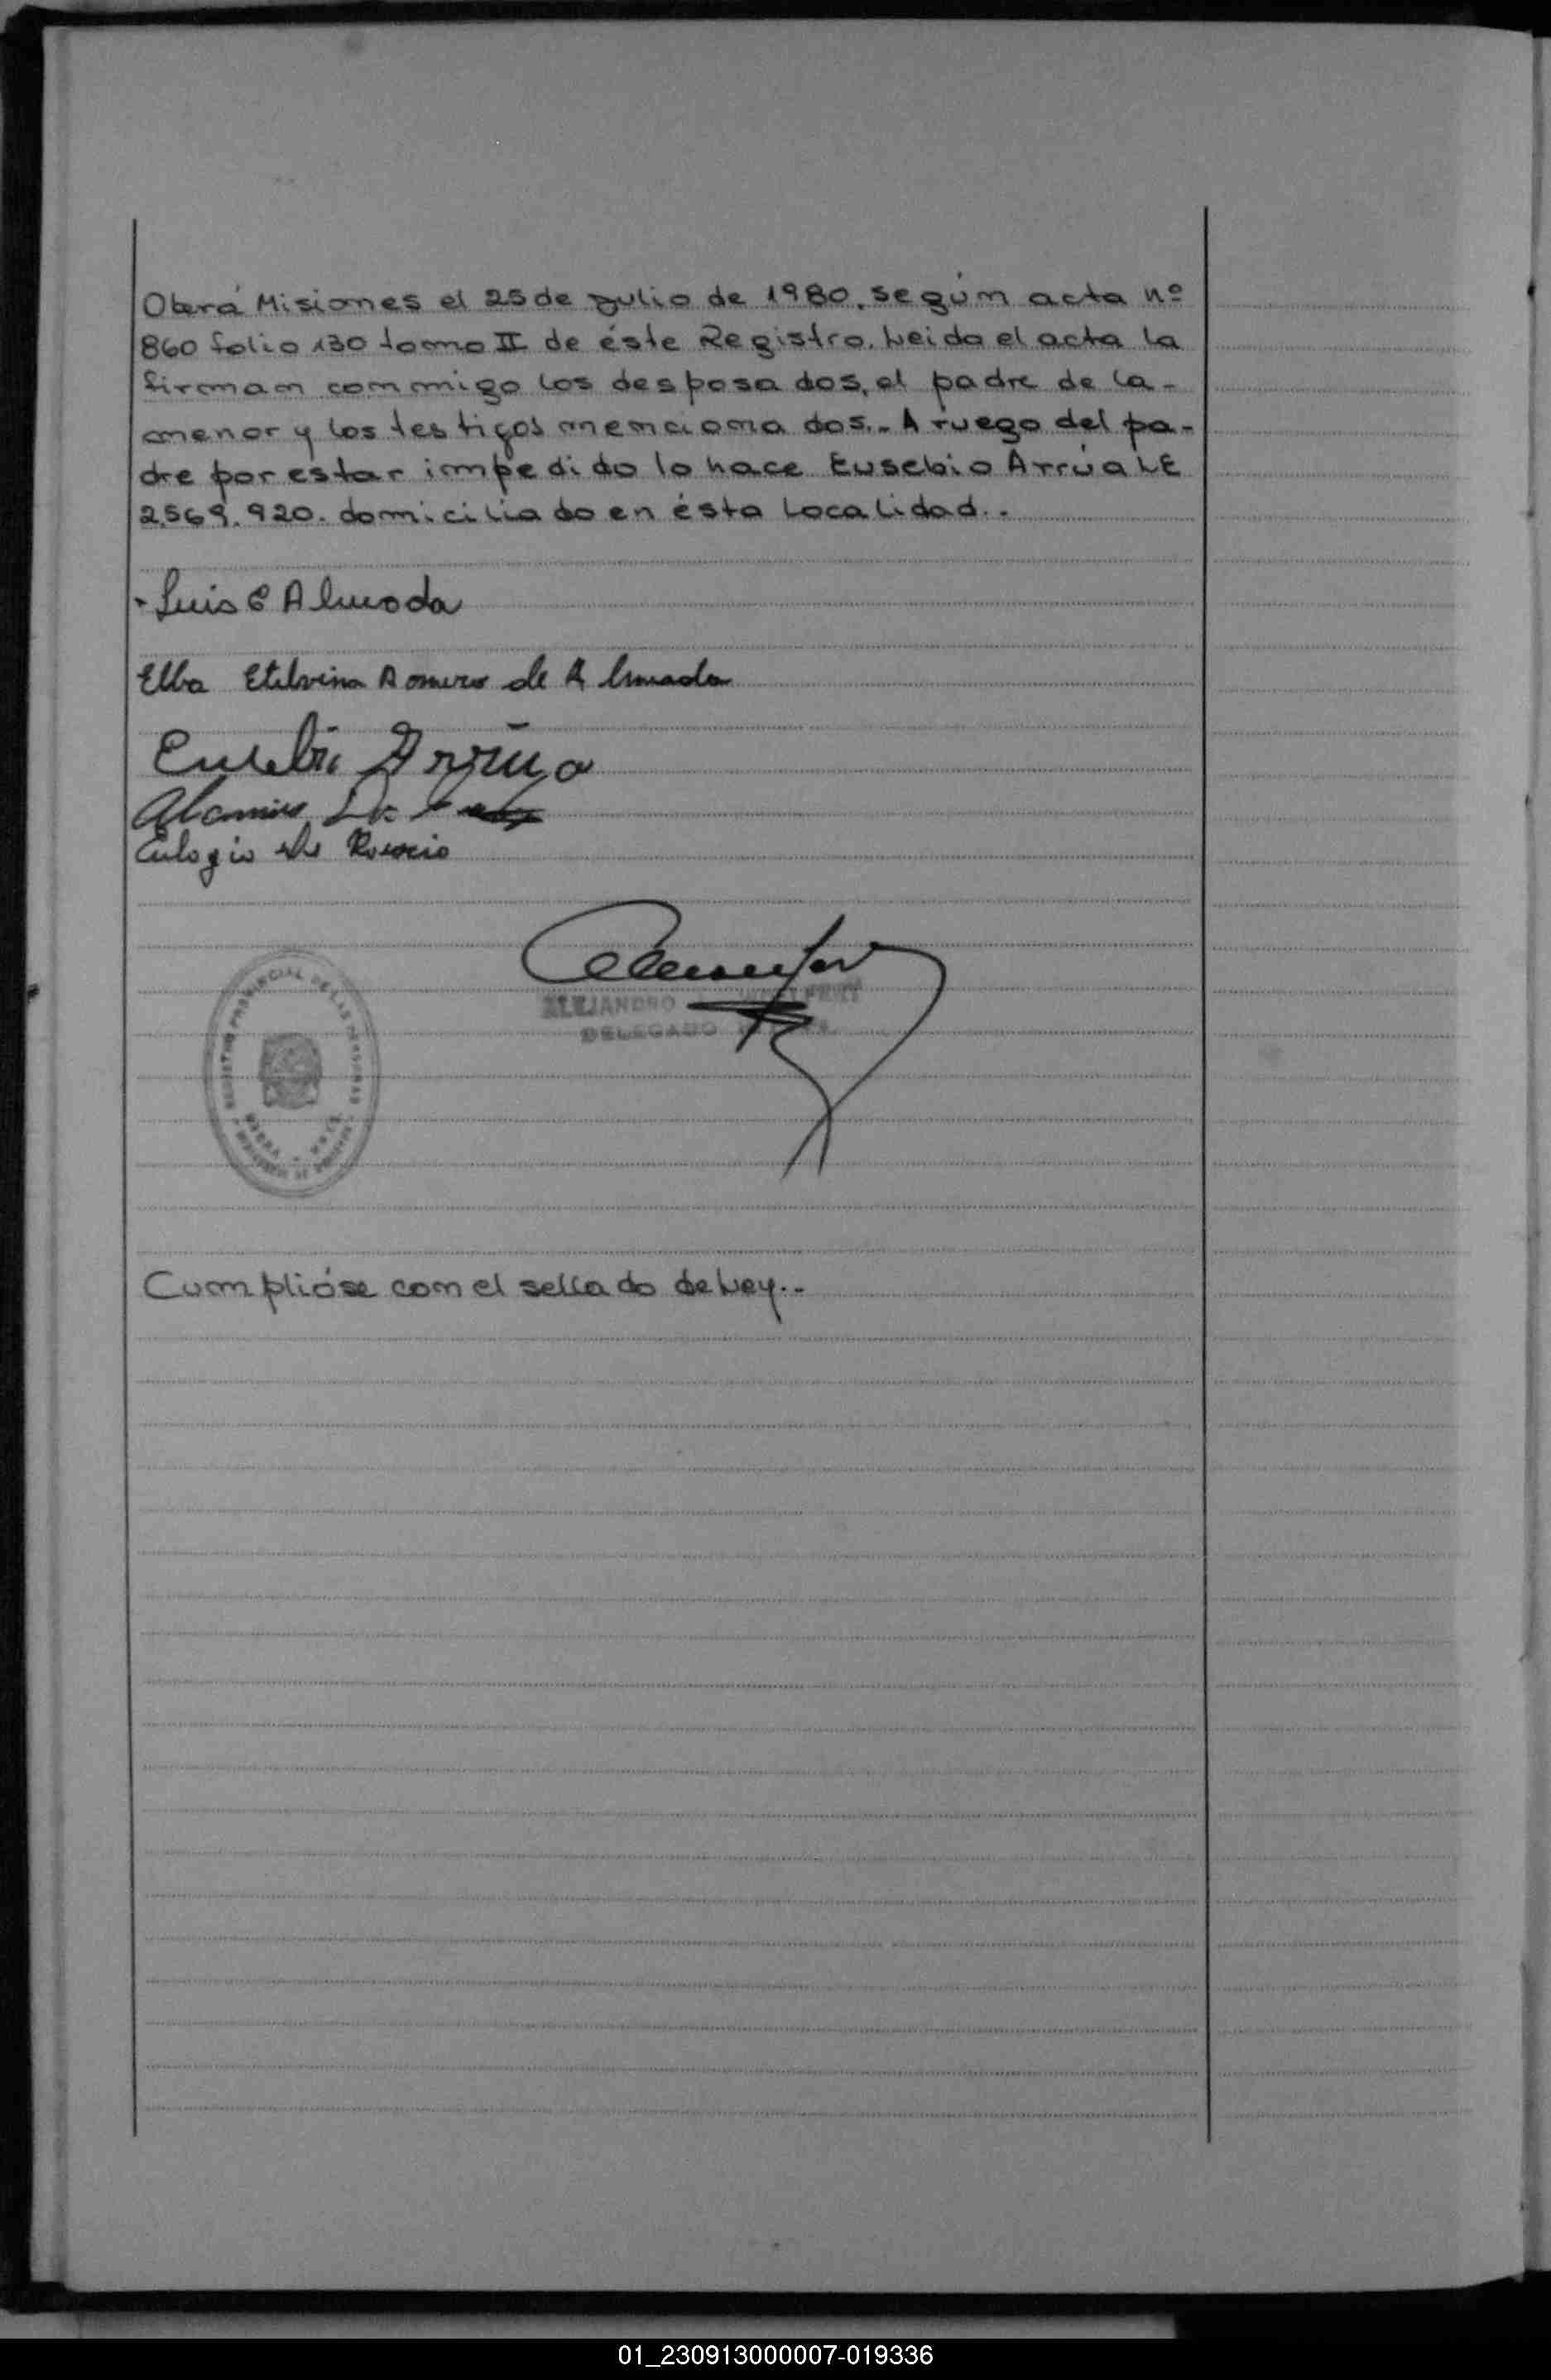 Oberá Misiones el 25 de Julio de 1980, según acta nº
860 folio 130 tomo II de éste Registro. Leida el acta la
firman conmigo los desposados, el padre de la-
menor y los testigos mencionados.- A ruego del pa-
dre por estar impedido lo hace Eusebio Arrúa LE
2.569.920. domiciliado en ésta Localidad.-
Luis E Almada
Elba Etelvina Romero de Almada
Eusebio Arrúa
Eulogio
REGISTRO PROVINCIAL DE LAS PERSONAS
ALEJANDRO
DELEGADO
Cumplióse con el sellado de Ley.-
01_230913000007-019336